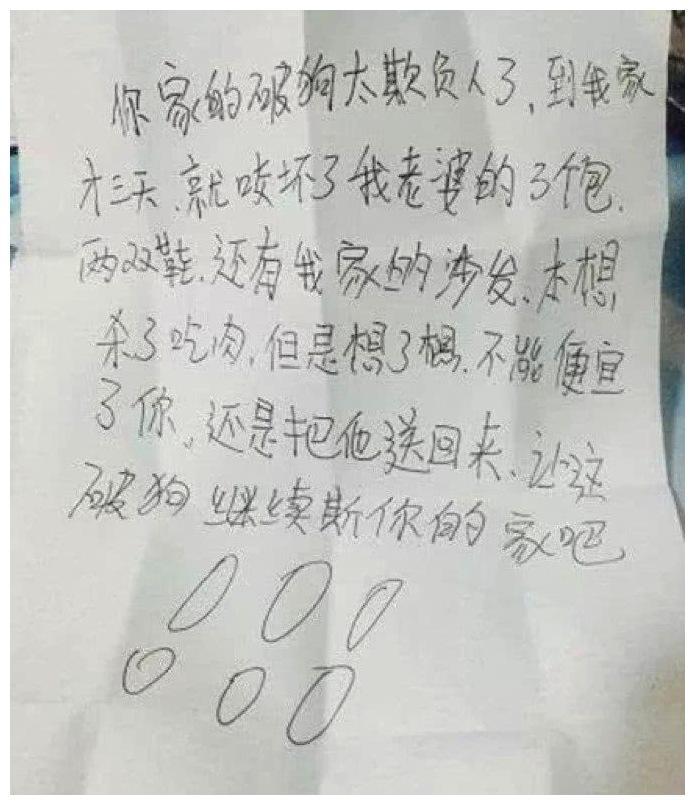 你家的破狗太欺负人了,到我家
才三天.就咬坏了我老婆的3个包.
两双鞋.还有我家的沙发.本想
杀了吃肉.但是想了想.不能便宜
了你.还是把他送回来.让这
破狗继续斯你的家吧